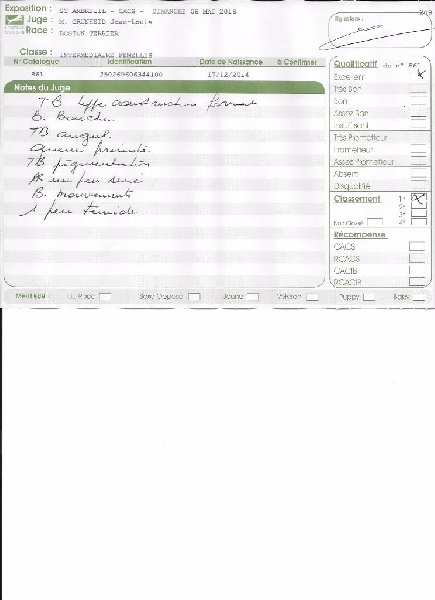 Exposition : ST AMBREUIL - CACS - DIMANCHE 08 MAI 2016
Juge : M. Jean-Louis
Race : BOSTON TERRIER
Classe : INTERMEDIAIRE FEMELLES
N° Catalogue Identification Date de Naissance à Confirmer
861 250269606344100 17/12/2014
Notes du Juge
TB type construction
B.
TB
TB pigmentation
un peu
B. mouvements
1 peu timide
Signature :
Qualificatif du n° 861
Excellent
Très Bon
Bon
Assez Bon
Insuffisant
Très Prometteur
Prometteur
Assez Prometteur
Absent
Disqualifié
Classement 1er
2e
3e
Non Classé 4e
Récompense
CACS
RCACS
CACIB
RCACIB
Meilleur : De Race Sexe Opposé Jeune Vétéran Puppy Baby